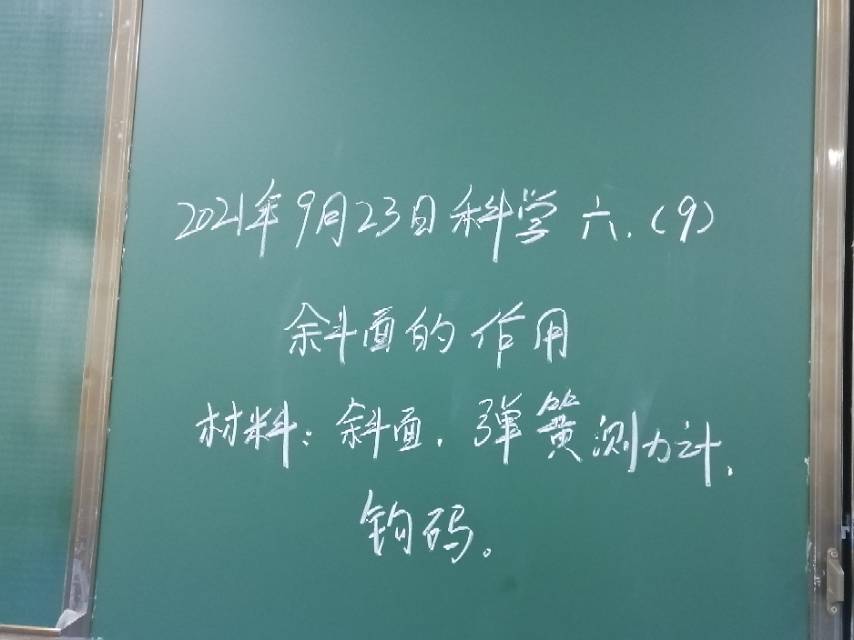 2021年9月23日科学 六.(9)
斜面的作用
材料:斜面.弹簧测力计、
钩码。